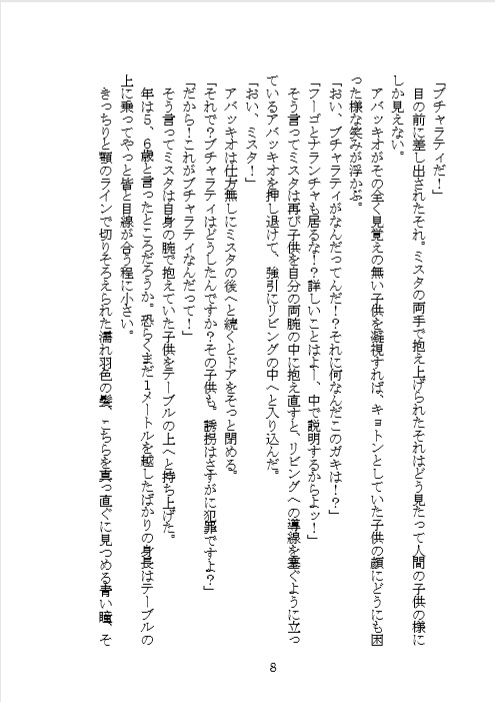 「ブチャラティだ！」
　目の前に差し出されたそれ。ミスタの両手で抱え上げられたそれはどう見たって人間の子供の様に
しか見えない。
　アバッキオがその全く見覚えの無い子供を凝視すれば、キョトンとしていた子供の顔にどうにも困
った様な笑みが浮かぶ。
「おい、ブチャラティがなんだってんだ！？それに何なんだこのガキは！？」
「フーゴとナランチャも居るな！？詳しいことはよー、中で説明するからよッ！」
　そう言ってミスタは再び子供を自分の両腕の中に抱え直すと、リビングへの導線を塞ぐように立っ
ているアバッキオを押し退けて、強引にリビングの中へと入り込んだ。
「おい、ミスタ！」
　アバッキオは仕方無しにミスタの後へと続くとドアをそっと閉める。
「それで？ブチャラティはどうしたんですか？その子供も。誘拐はさすがに犯罪ですよ？」
「だから！これがブチャラティなんだって！」
　そう言ってミスタは自身の腕で抱えていた子供をテーブルの上へと持ち上げた。
　年は５、６歳と言ったところだろうか。恐らくまだ１メートルを越したばかりの身長はテーブルの
上に乗ってやっと皆と目線が合う程に小さい。
　きっちりと顎のラインで切りそろえられた濡れ羽色の髪、こちらを真っ直ぐに見つめる青い瞳、そ
8